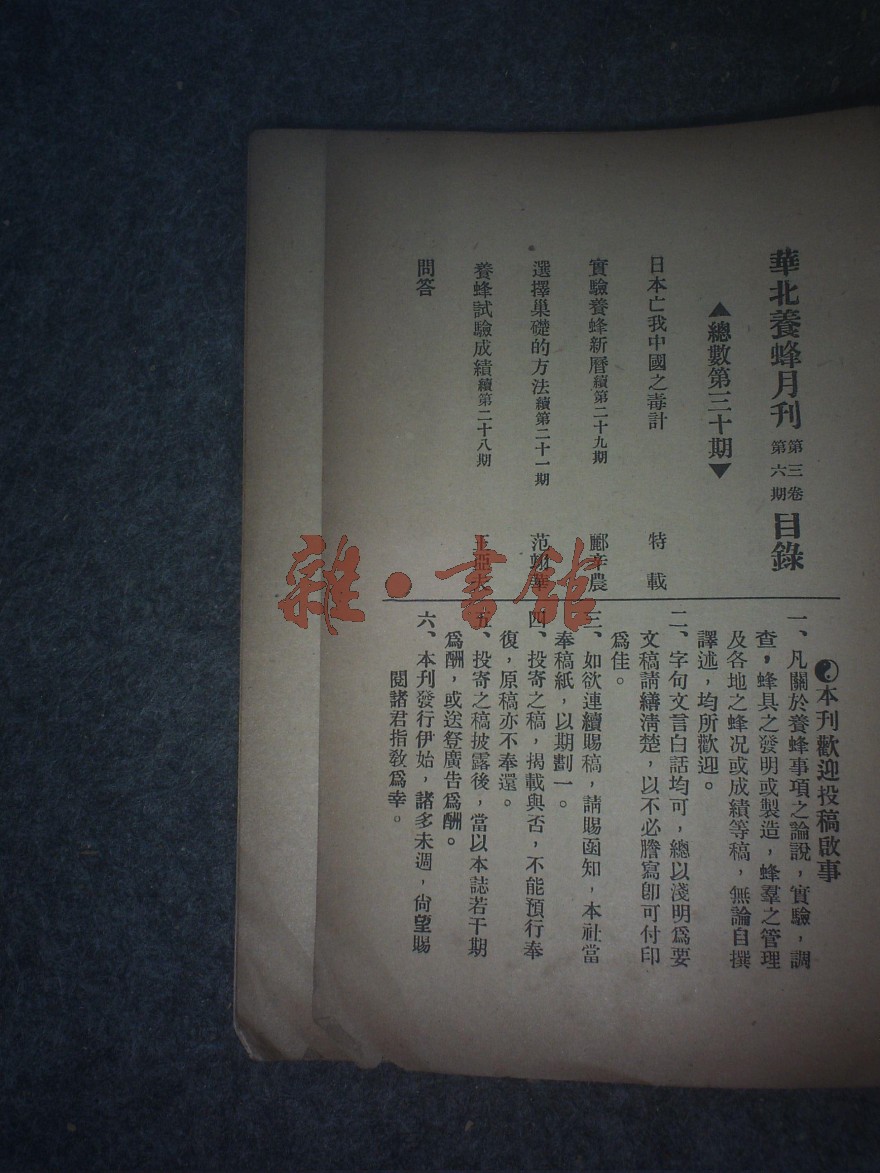 華北養蜂月刊 第三卷 第六期 目錄
▲總數第三十期▼
日本亡我中國之毒計 特載
實驗養蜂新曆續第二十九期 郦辛農
選擇巢礎的方法續第二十一期 范翰華
養蜂試驗成績續第二十八期 王亞夫
問答
本刊歡迎投稿啟事
一、凡關於養蜂事項之論說，實驗，調
查，蜂具之發明或製造，蜂羣之管理
及各地之蜂况或成績等稿，無論自撰
譯述，均所歡迎。
二、字句文言白話均可，總以淺明爲要
文稿請繕清楚，以不必謄寫卽可付印
爲佳。
三、如欲連續賜稿，請賜函知，本社當
奉稿紙，以期劃一。
四、投寄之稿，揭載與否，不能預行奉
復，原稿亦不奉還。
五、投寄之稿披露後，當以本誌若干期
爲酬，或送登廣告爲酬。
六、本刊發行伊始，諸多未週，尙望賜
閱諸君指敎爲幸。
雜·書館